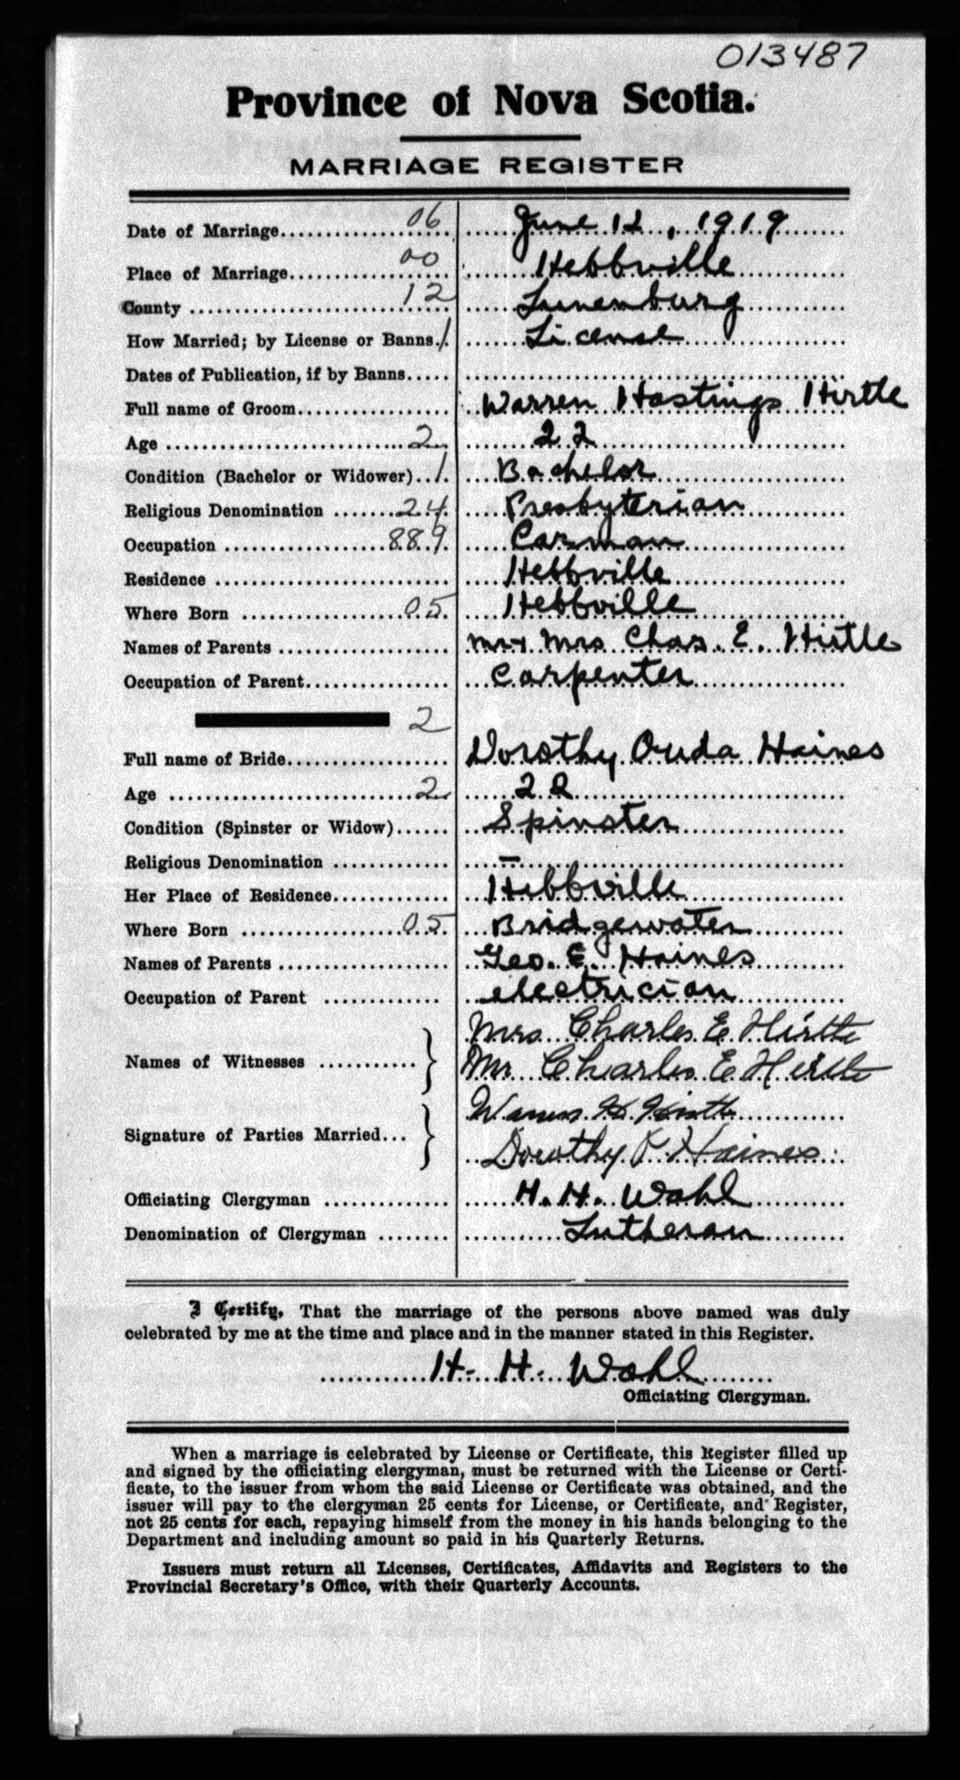 013487
Province of Nova Scotia.
MARRIAGE REGISTER
Date of Marriage 06 June 12, 1919
Place of Marriage 00 Hebbville
County 12 Lunenburg
How Married; by License or Banns 1 License
Dates of Publication, if by Banns
Full name of Groom Warren Hastings Hirtle
Age 2 22
Condition (Bachelor or Widower) 1 Bachelor
Religious Denomination 24 Presbyterian
Occupation 889 Carman
Residence Hebbville
Where Born 05 Hebbville
Names of Parents Mr + Mrs Chas. E. Hirtle
Occupation of Parent Carpenter
2
Full name of Bride Dorothy Ouda Haines
Age 2 22
Condition (Spinster or Widow) Spinster
Religious Denomination –
Her Place of Residence Hebbville
Where Born 05 Bridgewater
Names of Parents Geo. E. Haines
Occupation of Parent electrician
Mrs. Charles E. Hirtle
Names of Witnesses Mr. Charles E Hirtle
Warren H. Hirtle
Signature of Parties Married Dorothy Haines
Officiating Clergyman H. H. Wahl
Denomination of Clergyman Lutheran
I Certify, That the marriage of the persons above named was duly
celebrated by me at the time and place and in the manner stated in this Register.
H. H. Wahl
Officiating Clergyman.
When a marriage is celebrated by License or Certificate, this Register filled up
and signed by the officiating clergyman, must be returned with the License or Certi-
ficate, to the issuer from whom the said License or Certificate was obtained, and the
issuer will pay to the clergyman 25 cents for License, or Certificate, and Register,
not 25 cents for each, repaying himself from the money in his hands belonging to the
Department and including amount so paid in his Quarterly Returns.
Issuers must return all Licenses, Certificates, Affidavits and Registers to the
Provincial Secretary's Office, with their Quarterly Accounts.